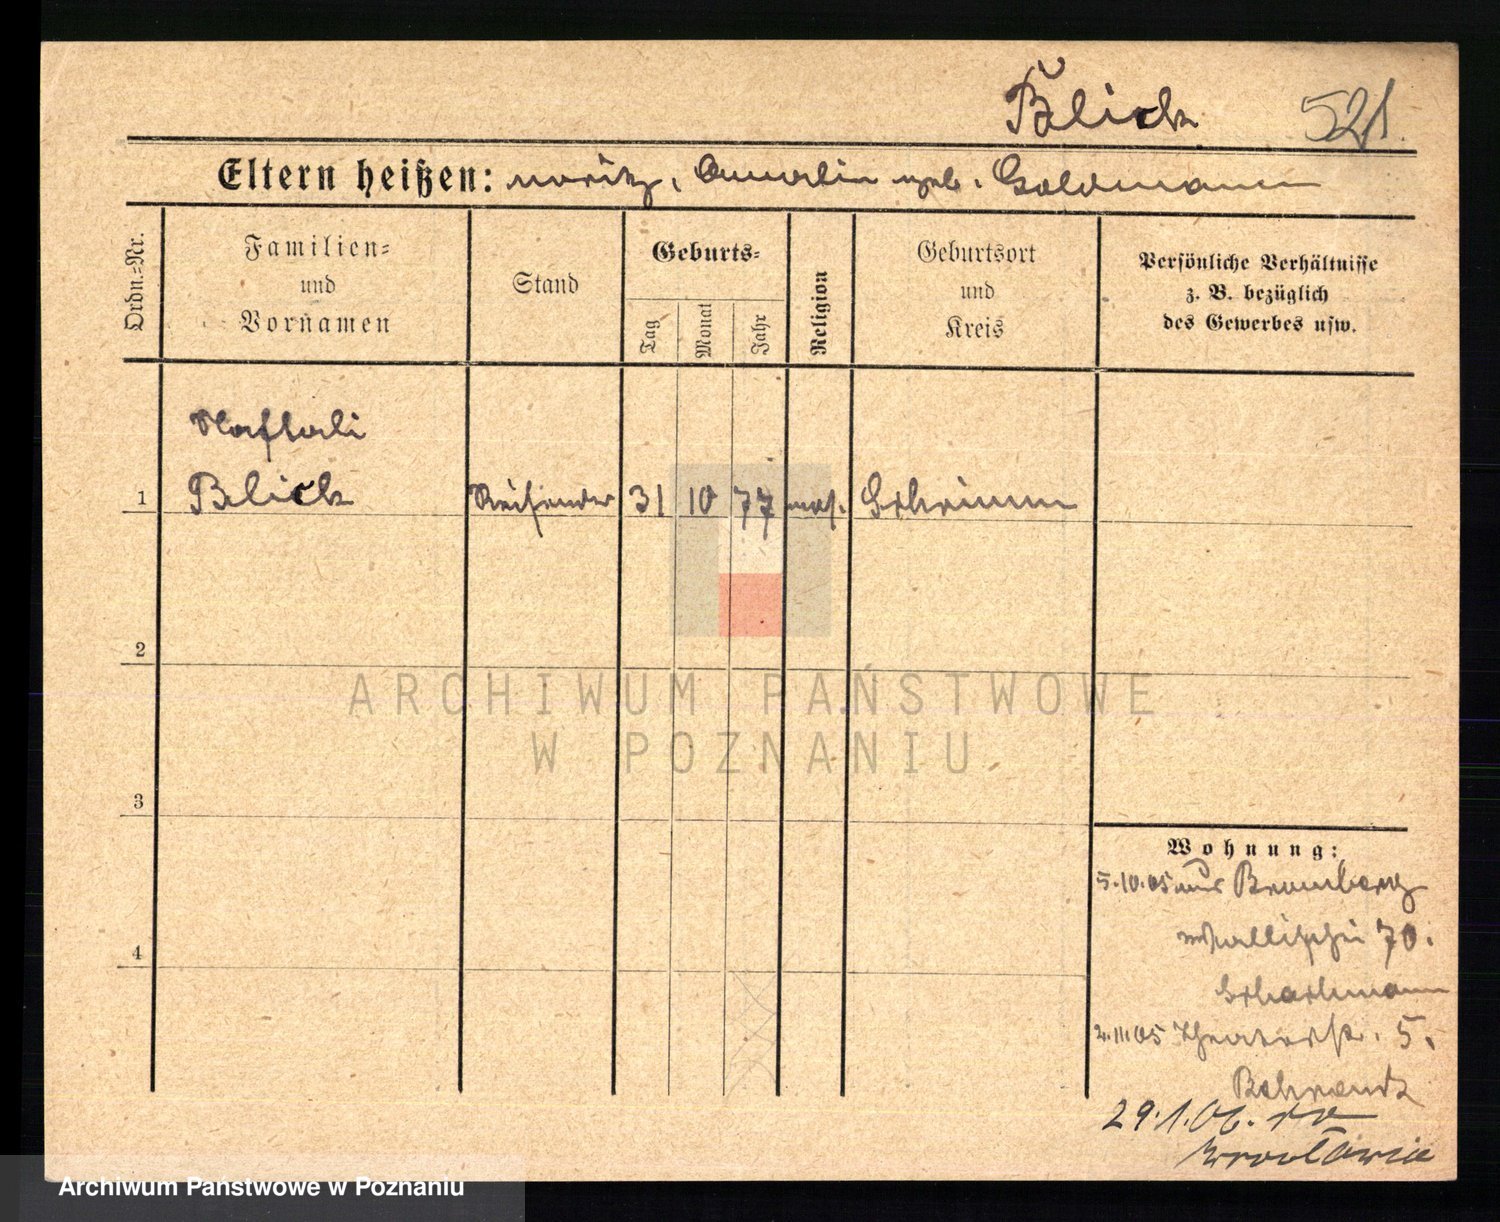 Blick 521.
Eltern heißen: Moritz, Amalie geb. Goldmann
Ordn.-Nr.
Familien-
und
Vornamen
Stand
Geburts-
Tag
Monat
Jahr
Religion
Geburtsort
und
Kreis
Persönliche Verhältnisse
z. B. bezüglich
des Gewerbes usw.
Naftali
1 Blick Reisender 31 10 77 mos. Schrimm
2
ARCHIWUM PAŃSTWOWE
W POZNANIU
3
Wohnung:
5.10.05 aus Bromberg
Wallischei 70.
4
2.11.05 Theaterstr. 5.
29.1.06.
Archiwum Państwowe w Poznaniu